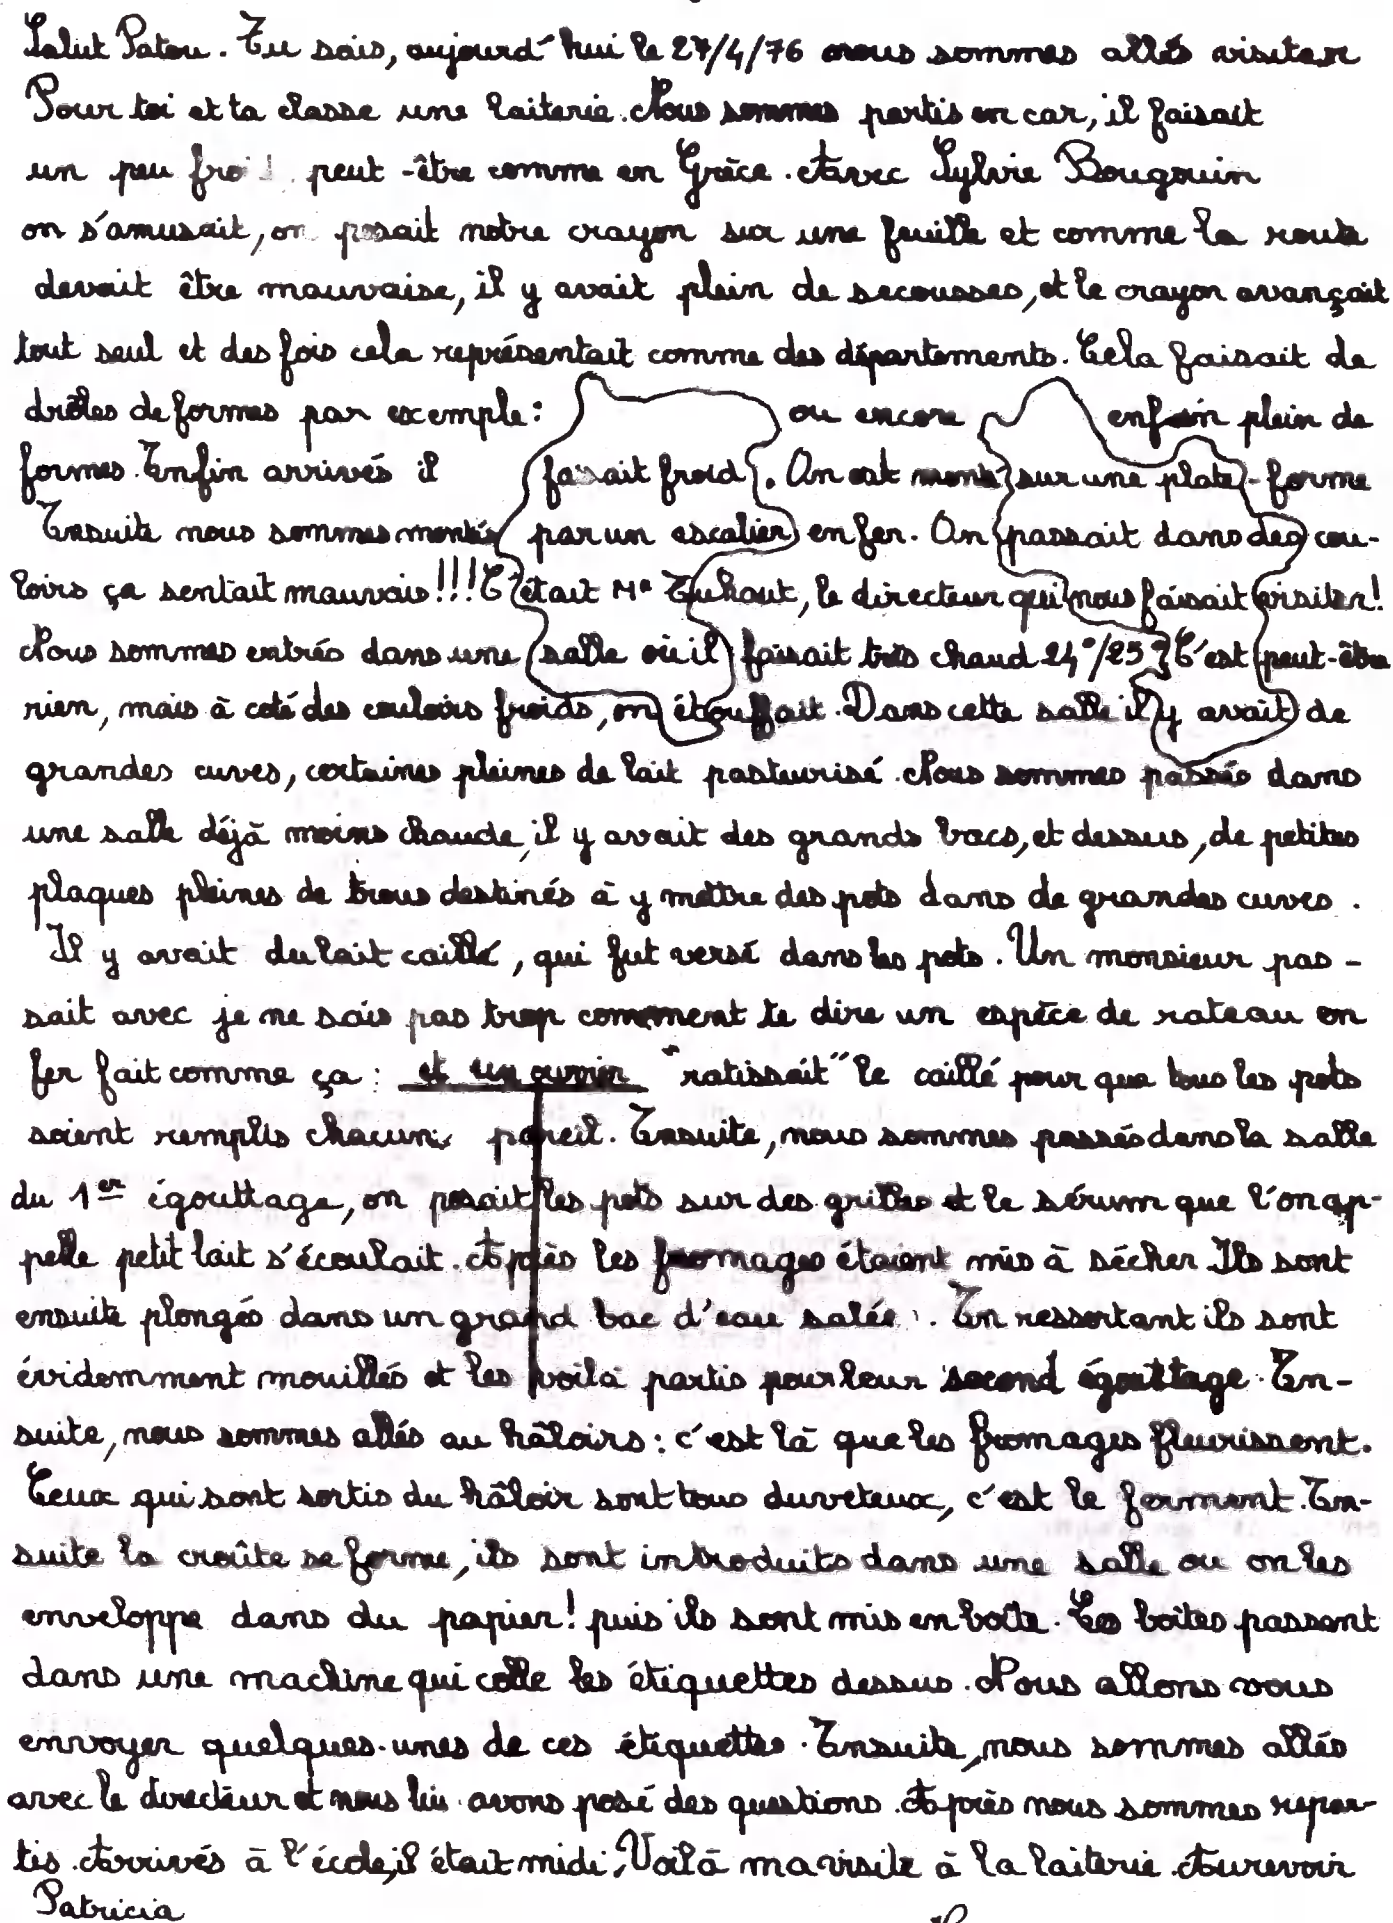 Salut Patou. Tu sais, aujourd'hui le 27/4/76 nous sommes allés visiter
Pour toi et ta classe une laiterie. Nous sommes partis en car, il faisait
un peu froid peut-être comme en Grèce. Avec Sylvie Bougouin
on s'amusait, on posait notre crayon sur une feuille et comme la route
devait être mauvaise, il y avait plein de secousses, et le crayon avançait
tout seul et des fois cela représentait comme des départements. Cela faisait de
drôles de formes par exemple: ou encore enfin plein de
formes. Enfin arrivés il faisait froid. On est monté sur une plate-forme
Ensuite nous sommes montés par un escalier en fer. On passait dans des cou-
loirs ça sentait mauvais!!! C'était Mr Tuhaut, le directeur qui nous faisait visiter!
Nous sommes entrés dans une salle où il faisait très chaud 24°/25° C'est peut-être
rien, mais à coté des couloirs froids, on étouffait. Dans cette salle il y avait de
grandes cuves, certaines pleines de lait pasteurisé. Nous sommes passés dans
une salle déjà moins chaude, il y avait des grands bacs, et dessus, de petites
plaques pleines de trous destinés à y mettre des pots dans de grandes cuves.
Il y avait du lait caillé, qui fut versé dans les pots. Un monsieur pas-
sait avec je ne sais pas trop comment te dire un espèce de rateau en
fer fait comme ça: et un ouvrier "ratissait" le caillé pour que tous les pots
soient remplis chacun pareil. Ensuite, nous sommes passés dans la salle
du 1er égouttage, on posait les pots sur des grilles et le sérum que l'on ap-
pelle petit lait s'écoulait. Après les fromages étaient mis à sécher. Ils sont
ensuite plongés dans un grand bac d'eau salée. En ressortant ils sont
évidemment mouillés et les voilà partis pour leur second égouttage. En-
suite, nous sommes allés au hâloirs: c'est là que les fromages fleurissent.
Ceux qui sont sortis du hâloir sont tous duveteux, c'est le ferment. En-
suite la croûte se forme, ils sont introduits dans une salle ou on les
enveloppe dans du papier! puis ils sont mis en boîte. Ces boîtes passent
dans une machine qui colle les étiquettes dessus. Nous allons vous
envoyer quelques-unes de ces étiquettes. Ensuite, nous sommes allés
avec le directeur et nous lui avons posé des questions. Après nous sommes repar-
tis. Arrivés à l'école, il était midi. Voilà ma visite à la laiterie. Aurevoir
Patricia